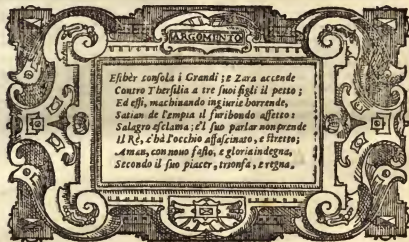 ARGOMENTO
Esibèr consola i Grandi; e Zara accende
Contro Thersilia a tre suoi figli il petto;
Ed essi, machinando ingiurie horrende,
Satian de l'empia il furibondo affetto:
Salagro esclama; e'l suo parlar non prende
Il Rè, c'hà l'occhio affascinato, e stretto;
Aman, con nouo fasto, e gloria indegna,
Secondo il suo piacer, trionfa, e regna.